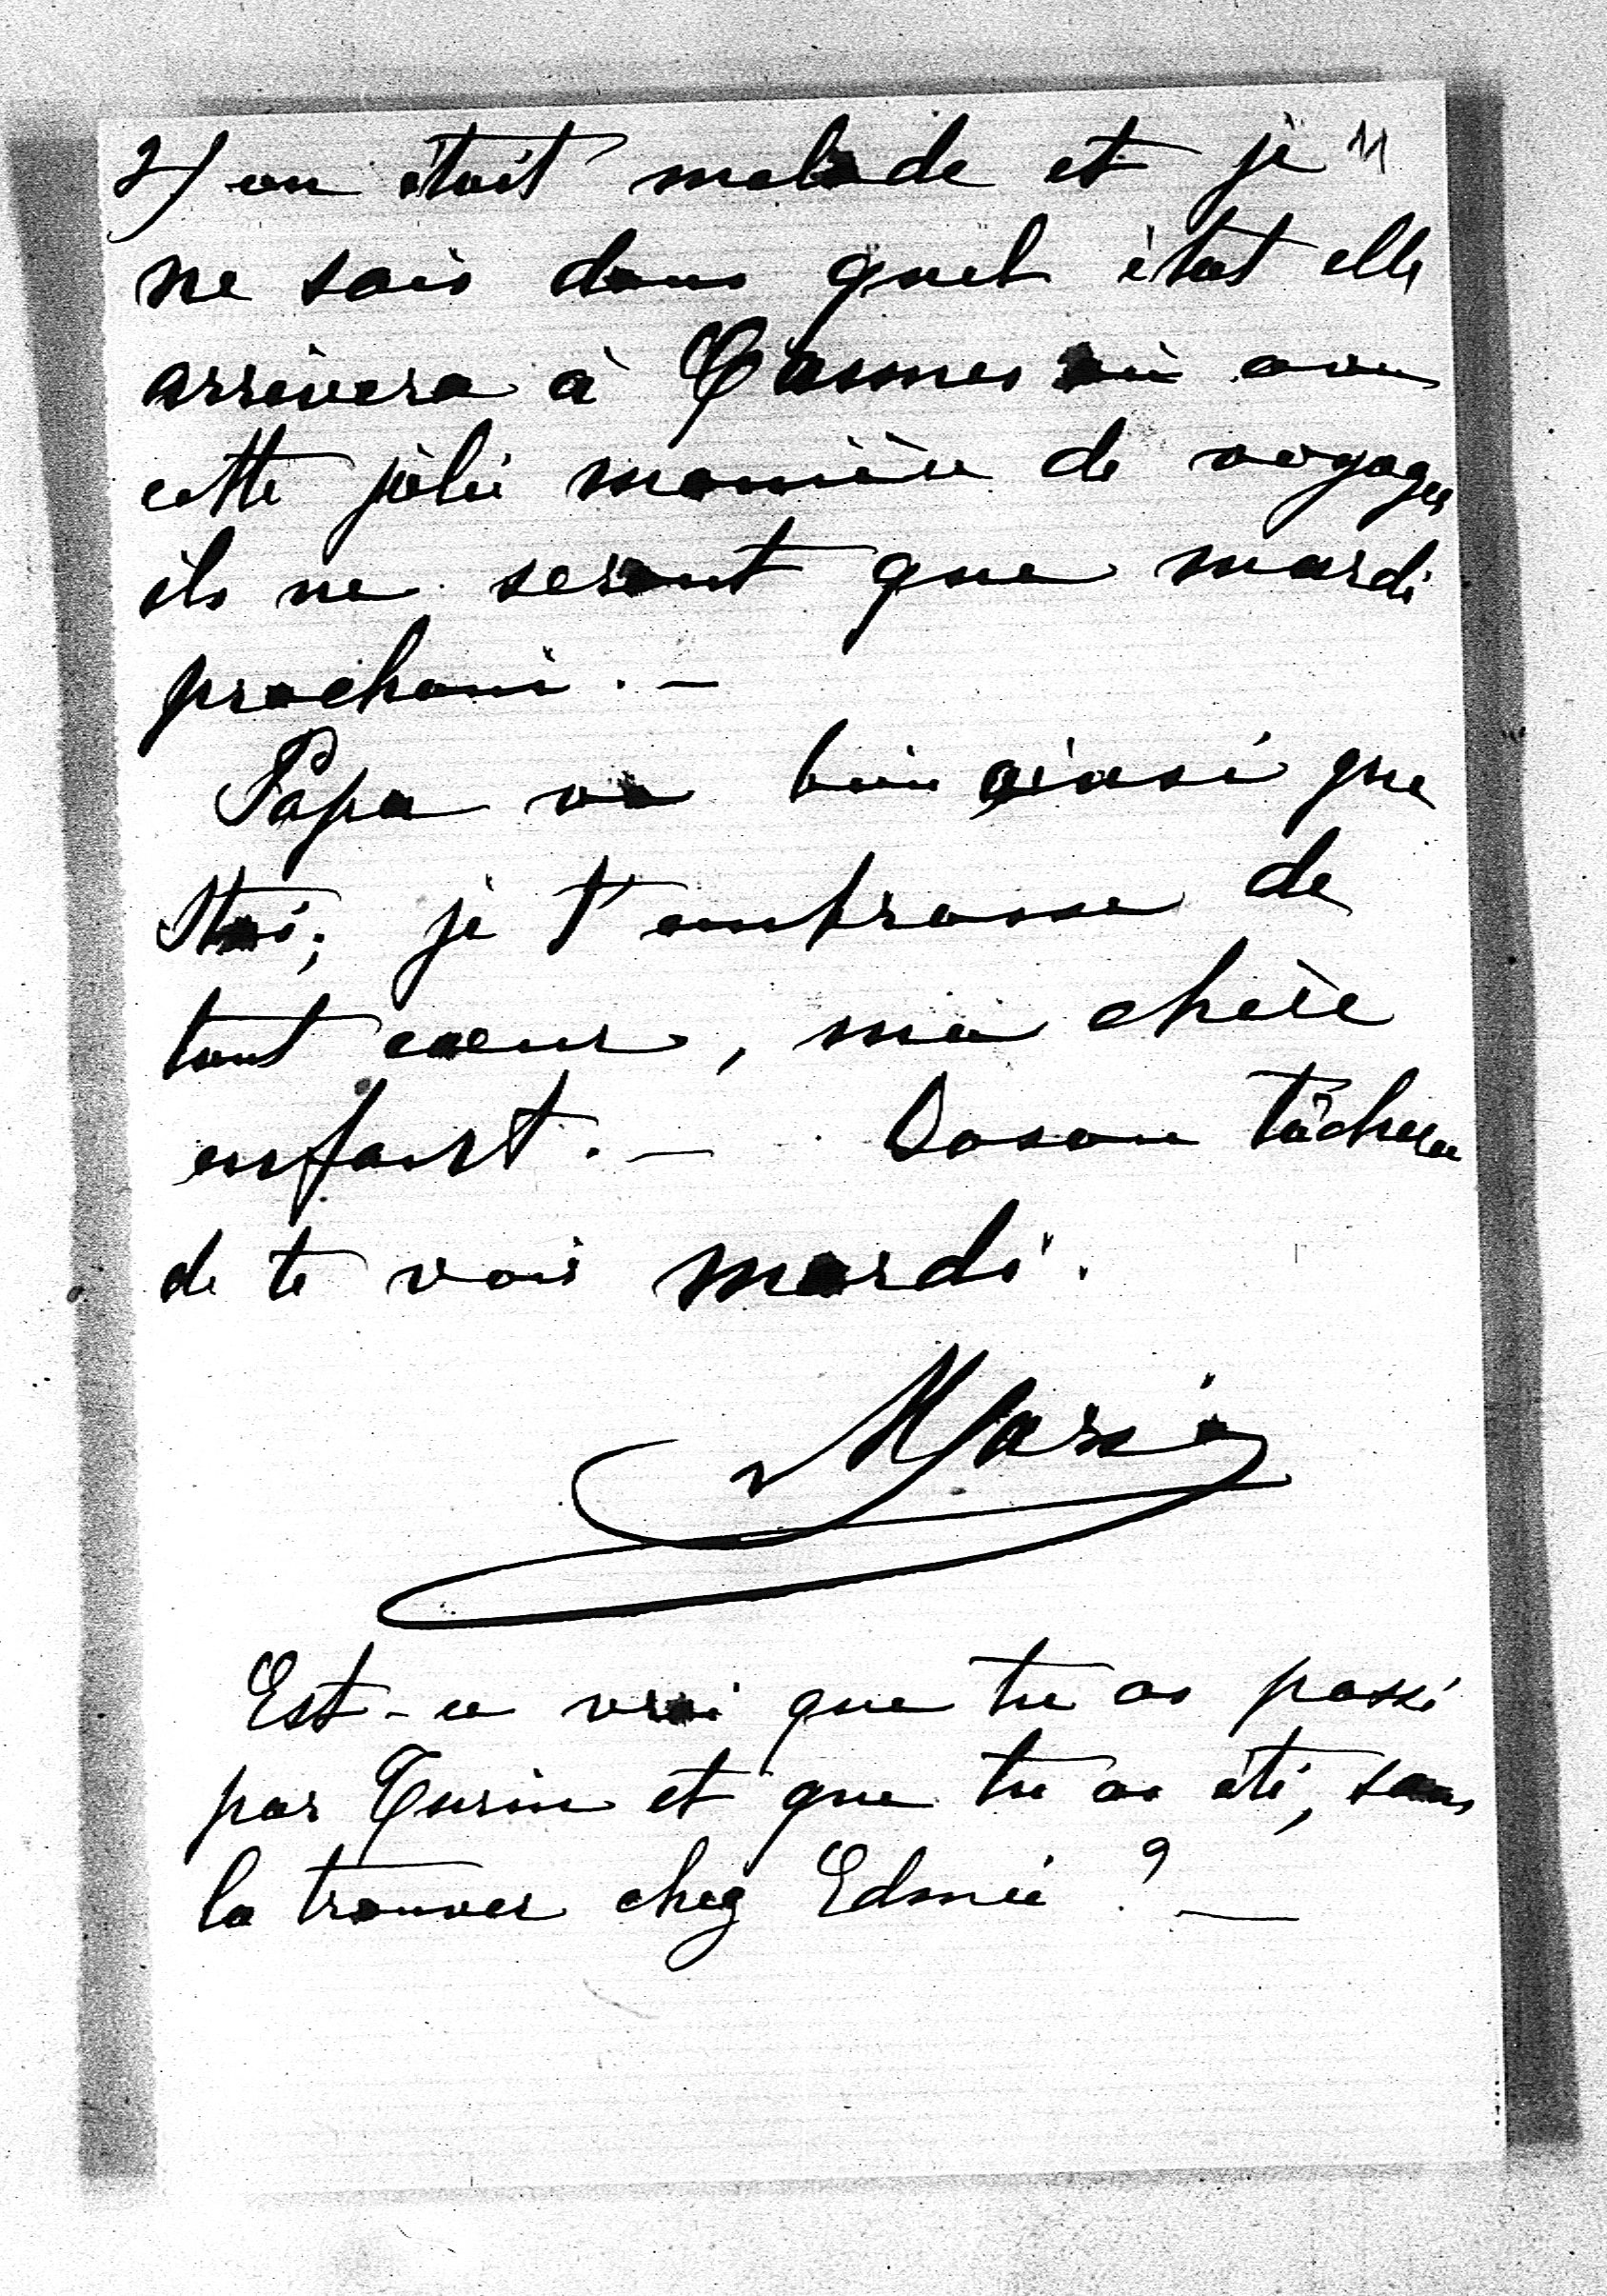 2) en était malade et je 11
ne sais dans quel état elle
arrivera à Cannes où avec
cette jolie manière de voyager
ils ne seront que mardi
prochain. —
Papa va bien ainsi que
moi; je t'embrasse de
tout cœur, ma chère
enfant. — Sosane tâchera
de te voir mardi.
Marie
Est-ce vrai que tu as passé
par Turin et que tu as été, sans
la trouver chez Edmée ? —